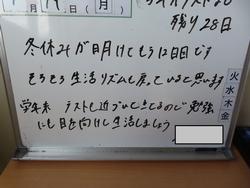 1月19日(月)
残り28日
冬休みが明けてもう12日目です
そろそろ生活リズムも戻っていると思います
学年末 テストも近づいてきてるので 勉強
にも目を向けて生活しましょう
火
水
木
金